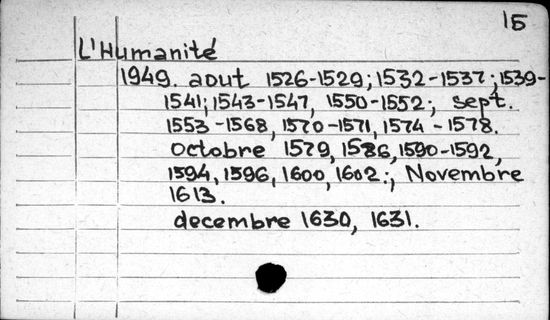 15
L'Humanité
1949. aout 1526-1529; 1532-1537; 1539-
1541; 1543-1547, 1550-1552; sept.
1553-1568, 1570-1571, 1574-1578.
octobre 1579, 1586, 1590-1592,
1594, 1596, 1600, 1602.; Novembre
1613.
decembre 1630, 1631.